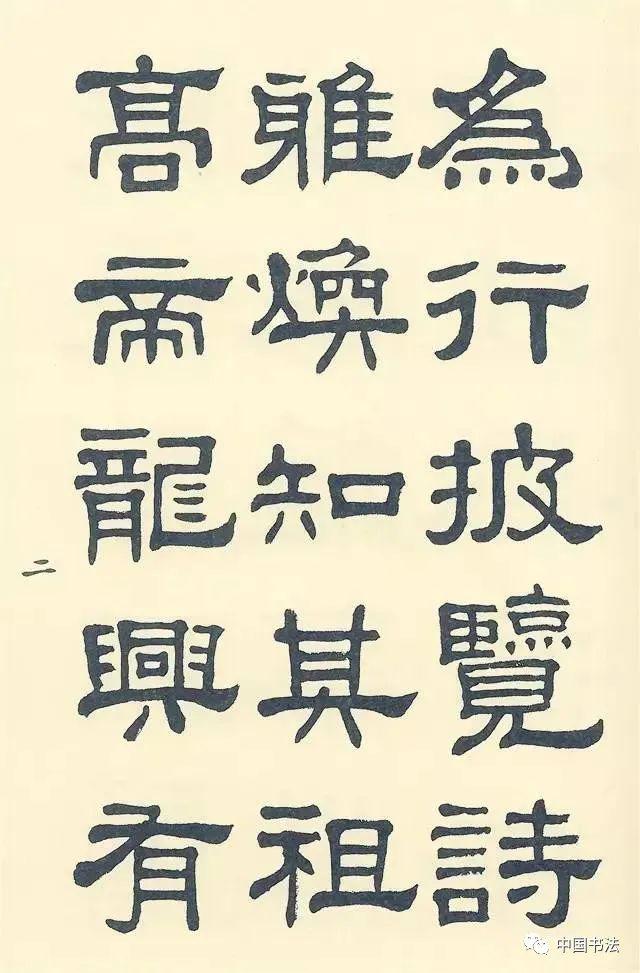 為行披覽詩
雅煥知其祖
高帝龍興有
二
中国书法